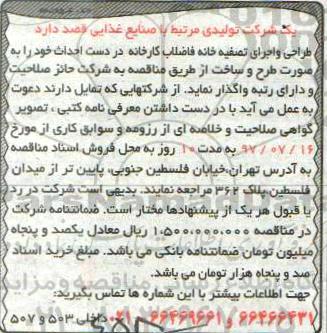 یک شرکت تولیدی مرتبط با صنایع غذایی قصد دارد
طراحی واجرای تصفیه خانه فاضلاب کارخانه در دست احداث خود را به
صورت طرح و ساخت از طریق مناقصه به شرکت حائز صلاحیت
و دارای رتبه واگذار نماید. از شرکتهایی که تمایل دارند دعوت
به عمل می آید با در دست داشتن معرفی نامه کتبی ، تصویر
گواهی صلاحیت و خلاصه ای از رزومه و سوابق کاری از مورخ
۹۷/۰۷/۱۶ به مدت ۱۰ روز به محل فروش اسناد مناقصه
به آدرس تهران،خیابان فلسطین جنوبی، پایین تر از میدان
فلسطین،پلاک ۳۶۲ مراجعه نمایند. بدیهی است شرکت در رد
یا قبول هر یک از پیشنهادها مختار است. ضمانتنامه شرکت
در مناقصه ۱،۵۰۰،۰۰۰،۰۰۰ ریال معادل یکصد و پنجاه
میلیون تومان ضمانتنامه بانکی می باشد. مبلغ خرید اسناد
صد و پنجاه هزار تومان می باشد.
جهت اطلاعات بیشتر با این شماره ها تماس بگیرید:
۶۶۴۶۶۴۳۱ و ۶۶۴۶۹۶۶۱-۰۲۱ داخلی ۵۰۳ و ۵۰۷